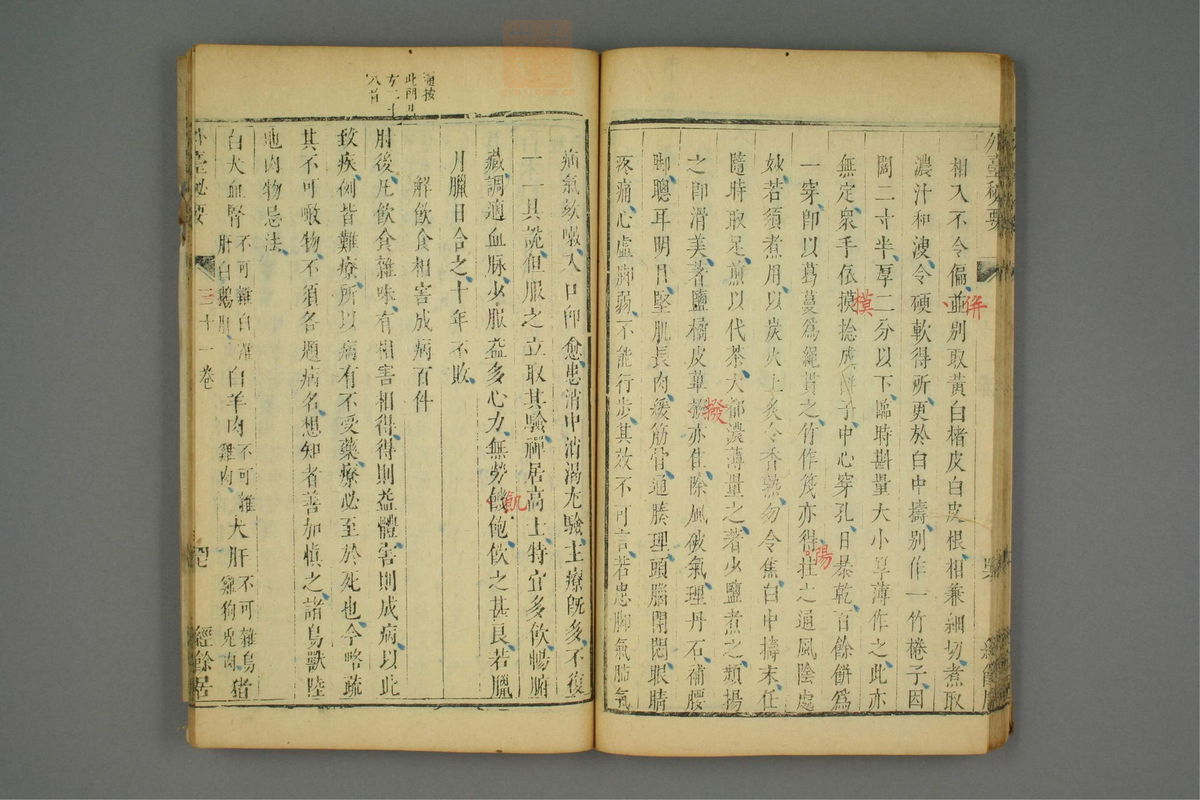 外臺秘要
相入不令偏並別取黃白楮皮白皮根相兼細切煮取
濃汁和溲令硬軟得所更於臼中擣別作一竹棬子因
闊二寸半厚二分以下臨時斟量大小厚薄作之此亦
無定衆手依摸捻成餅子中心穿孔日暴乾百餘餅爲
一穿卽以葛蔓爲繩貫之竹作筏亦得挂之通風陰處
妙若須煮用以炭火上炙令香熟勿令焦臼中擣末任
隨時取足煎以代茶大都濃薄量之著少鹽煮之頻揚
之卽滑美著鹽橘皮蓽撥亦佳除風破氣理丹石補腰
脚聰耳明目堅肌長肉緩筋骨通腠理頭腦閉悶眼睛
疼痛心虛脚弱不能行步其效不可言若患脚氣肺氣
併
模
陽
撥
疝氣欬嗽入口卽愈患消中消渴尤驗主療旣多不復
一一具說但服之立取其驗禪居高士特宜多飲暢腑
藏調適血脉少服益多心力無勞饑飽飲之甚良若臘
月臘日合之十年不敗
解飲食相害成病百件
肘後凡飲食雜味有相害相得得則益體害則成病以此
致疾例皆難療所以病有不受藥療必至於死也今略疏
其不可噉物不須各題病名想知者善加愼之諸鳥獸陸
地肉物忌法
白犬血腎不可雜白雞肝白鵝肝 白羊肉不可雜雞肉 犬肝不可雜烏雞狗兎肉 猪
飢
通按
此門
方二十
八首
外臺秘要
三十一卷
經餘居